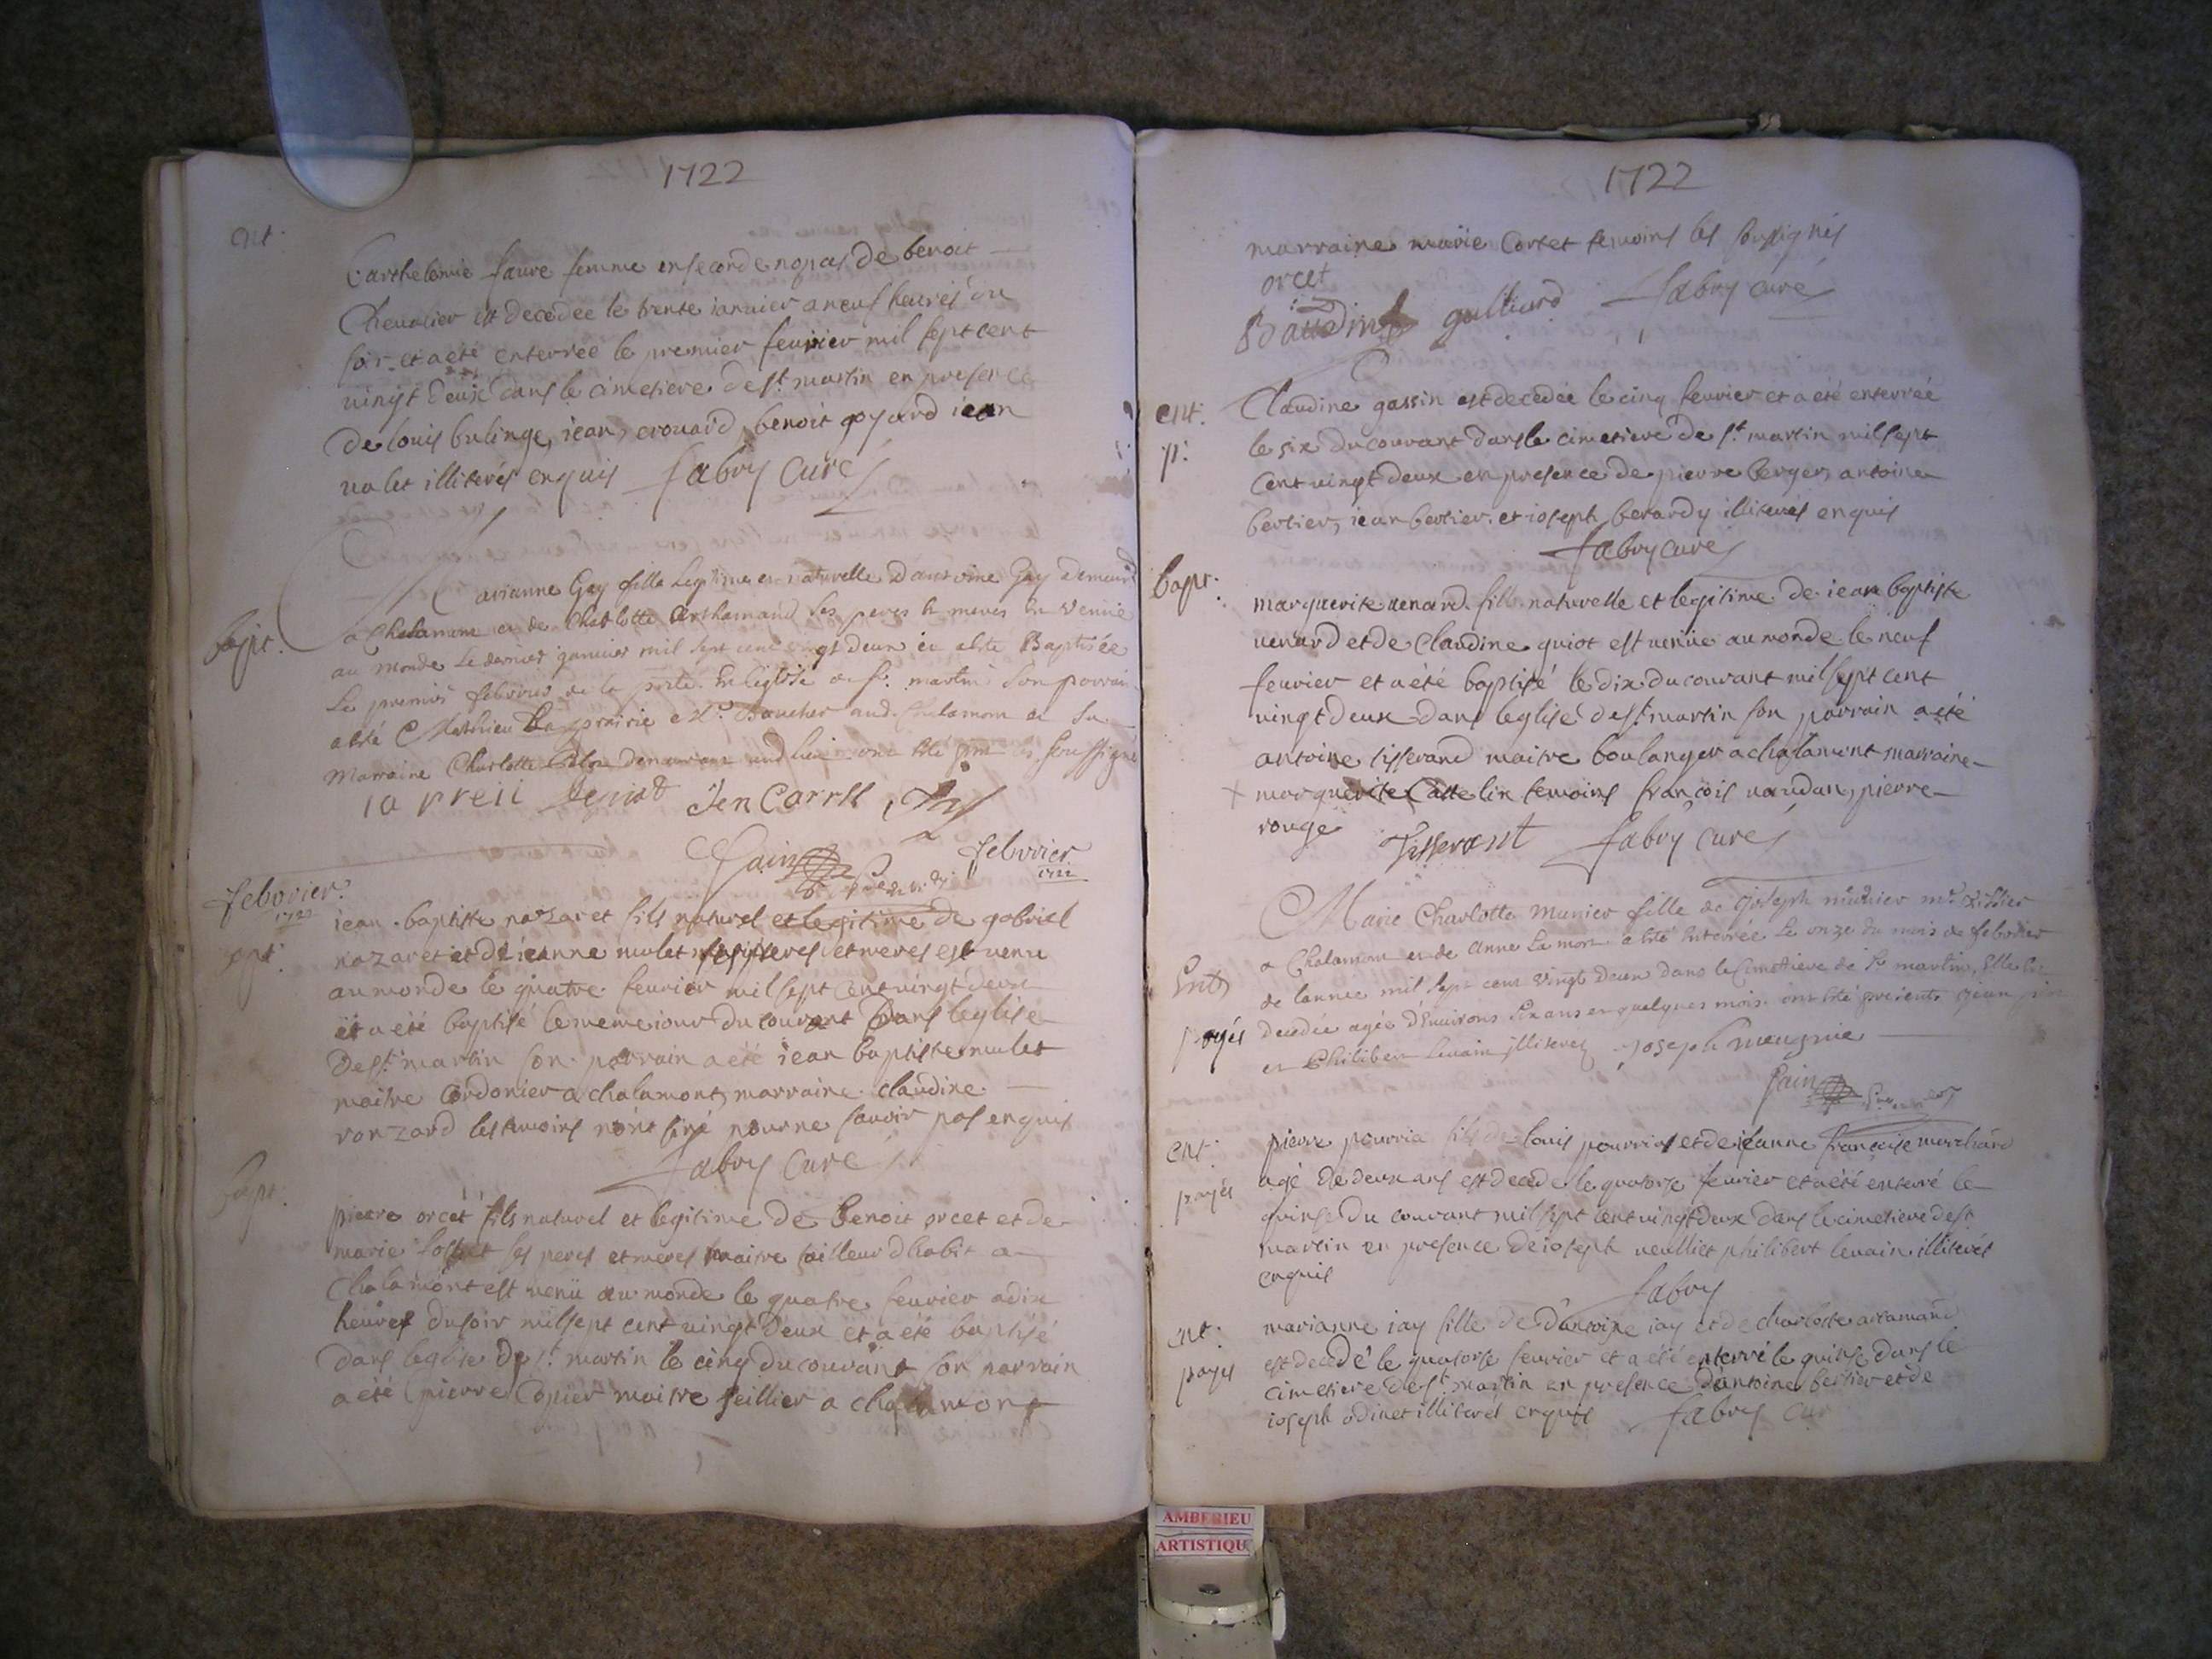 1722
ent.
barthelemie faure femme en seconde nopces de benoit
Chevalier est decedée le trente ianvier a neuf heures du
soir et a eté enterrée le premier fevrier mil sept cent
vingt deux dans le cimetiere de st. martin en presence
de louis bulinge, iean crouard, benoit goyard iean
valet illiterés enquis fabry Curé
bapt.
Marianne Gay fille legitime et naturelle D antoine Gay demeur
a Chalamont et de Charlotte Arthamand ses peres & meres En Venüe
au monde Le dernier janvier mil sept cent vingt deux et a esté Baptisée
Le premier febvrier de la Eglise de st. martin Son parrain
a esté Mathieu prairie Boucher aud. Chalamont et Sa
Marraine Charlotte demeurant aud lieu ont esté Soussigné
Jen Carrel
Sain
febvrier
1722
febvrier
1722
bapt.
iean baptiste nazaret fils naturel et legitime de gabriel
nazaret et de ieanne mulet ses peres et meres est venu
au monde le quatre fevrier mil sept cent vingt deux
et a été baptisé le meme iour du courant Dans l eglise
de st. martin son parrain a eté iean baptiste mulet
maitre Cordonier a chalamont, marraine claudine
ronzard les temoins n'ont siné pour ne savoir pas enquis
fabry Curé
bapt.
pierre orcet fils naturel et legitime de benoit orcet et de
marie ses peres et meres maitre tailleur d habit a
Chalamont est venü au monde le quatre fevrier a dix
heures du soir mil sept cent vingt deux et a eté baptisé
dans leglise de st. martin le cinq du couvant son parrain
a eté pierre Copier maitre seillier a chalamont
1722
marraine marie Cortet temoins les soussignés
orcet
Baudin galliard fabry Curé
ent.
Claudine gassin est decedée le cinq fevrier et a été enterrée
le six du couvant dans le cimetiere de st. martin mil sept
Cent vingt deux en presence de pierre berger, antoine
bertier, iean bertier et ioseph berardy illiterés enquis
fabry curé
bapt.
marguerite venard fille naturelle et legitime de iean baptiste
venard et de Claudine guiot est venüe au monde le neuf
fevrier et a été baptisé le dix du couvant mil sept cent
vingt deux dans leglise de st. martin son parrain a eté
antoine tisserand maitre boulanger a chalamont marraine
marguerite Castelin temoins françois naudan, pierre
rouge Tisserant fabry Curé
Ent
payés
Marie Charlotte Munier fille de Joseph munier mre.
a Chalamont et de Anne La mort a esté Enterrée Le onze du mois de febvrier
de lannée mil sept cent vingt deux dans le Cimetiere de St martin, Elle est
decedée agée d'Environs six ans et quelques mois. ont esté presents Jean
et Philibert levain illiterez Joseph meugnie
Sain
ent.
payés
pierre pourria fils de louis pourria et de ieanne françoise marchand
agé de deux ans est decedé le quatorse fevrier et a été enterré le
quinse du couvant mil sept cent vingt deux dans le cimetiere de st
martin en presence de ioseph veulliet philibert levain illiterés
enquis
fabry
ent.
payés
marianne iay fille de d'antoine iay et de charlotte artamand
est decedé le quatorse fevrier et a été enterré le quinse dans le
cimetiere de st. martin en presence d'antoine bertier et de
ioseph odinet illiterés enquis fabry Cur
AMBERIEU
ARTISTIQU